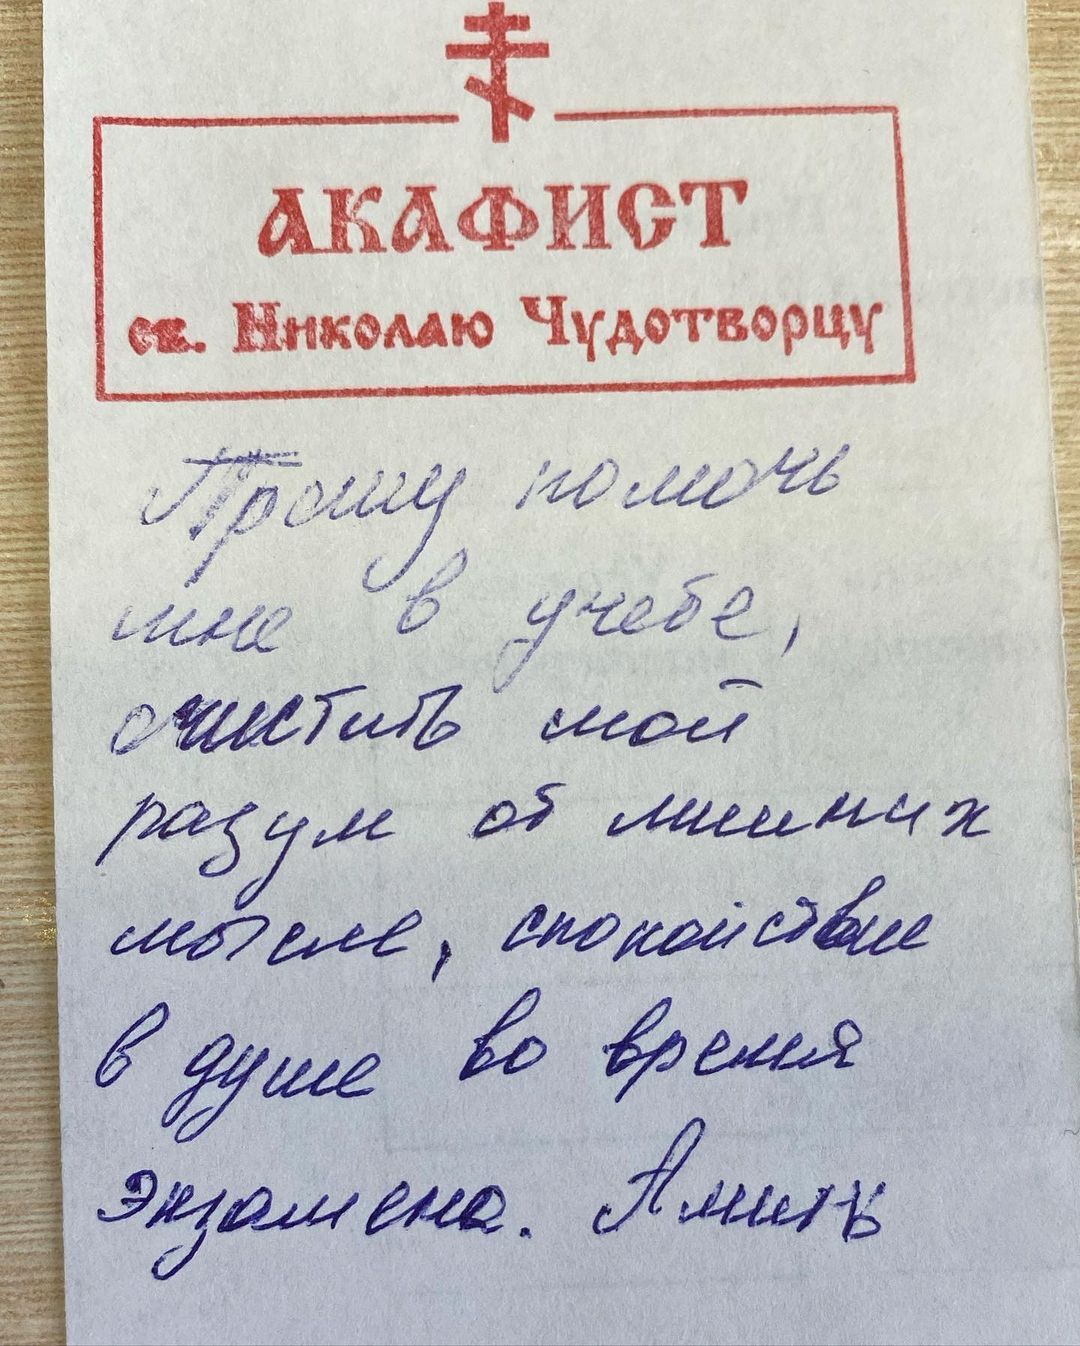 АКАФИСТ
св. Николаю Чудотворцу
Прошу помочь
мне в учебе,
очистить мой
разум от лишних
мысле, спокойствие
в душе во время
экзамена. Аминь